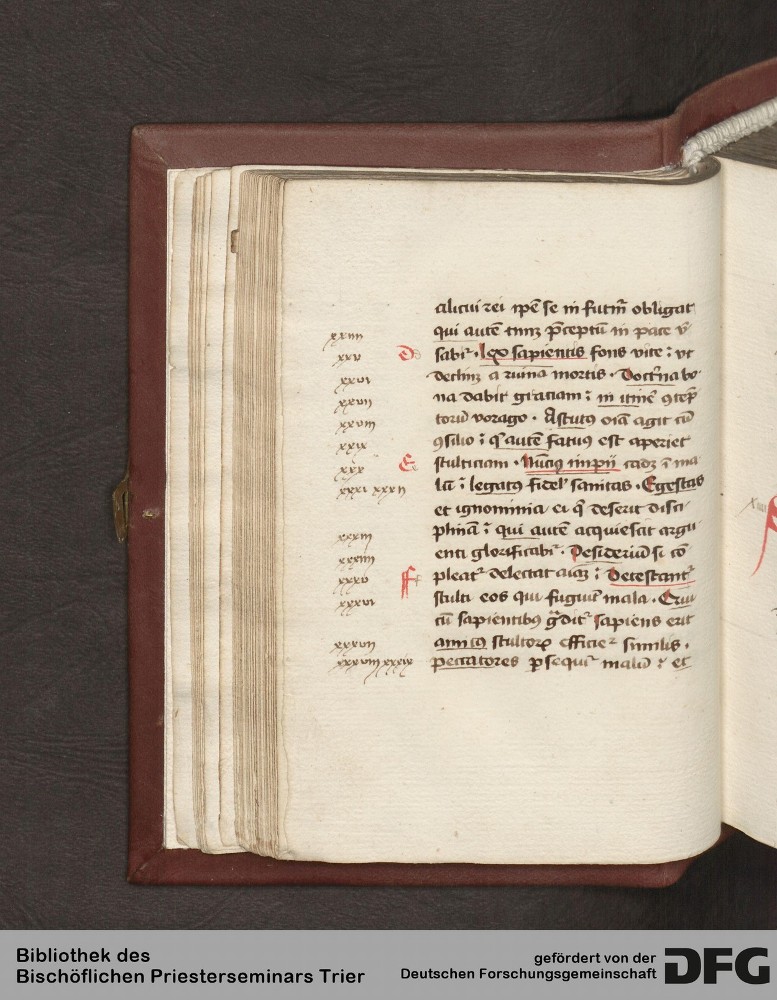 alicui rei ip̄e se in futur̄ obligat
qui autē timꝫ p̄ceptū in pace v̄
sabit͛ · lex sapientis fons vite : ut
declinꝫ a ruina mortis · Doct͛na bo
na dabit gratiam : in itinē ꝯtēp
torū vorago · Astutꝰ oīa agit cū
ꝯsilio : q͛ autē fatuꝰ est aperiet
stulticiam · Nūciꝰ impii cadꝫ ī ma
lū : legatꝰ fidel͛ sanitas · Egestas
et ignominia ei q̄ deserit disci
plinā : qui autē acquiescit argu
enti glorificabit͛ · Desideriū si cō
pleat͛ delectat aīaꝫ : Detestant͛
stulti eos qui fugiūt mala · Qui
cū sapientibꝰ gͣdit͛ sapiens erit
amicꝰ stultorꝫ efficiet͛ similis ·
peccatores ꝑsequit͛ malū : et
xxiiii
xxv
D
xxvi
xxvii
xxviii
xxix
xxx
E
xxxi xxxii
xxxiii
xxxiiii
xxxv
F
xxxvi
xxxvii
xxxviii xxxix
Bibliothek des
Bischöflichen Priesterseminars Trier
gefördert von der
Deutschen Forschungsgemeinschaft
DFG